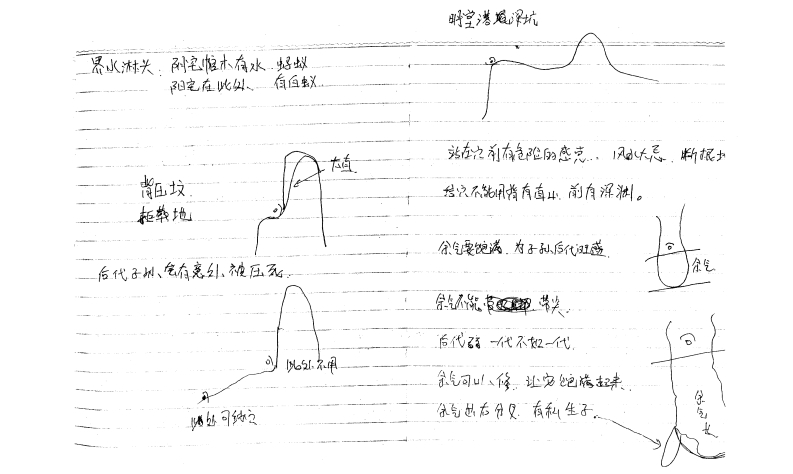 界水淋头：阴宅棺木有水、蚂蚁
阳宅在此处、有白蚁
太直
背压坟
后代子孙、会有意外、被压死.
此处不用
此处可结穴
明堂潜 深坑
站在穴前有危险的感觉. 风水大忌.
结穴不能用背有直山 前有深渊。
余气要饱满. 为子孙后代
余气
余气不能带 带尖.
后代 一代不如一代.
余气可以修. 让它饱满起来.
余气处右分叉. 有私生子.
余气长